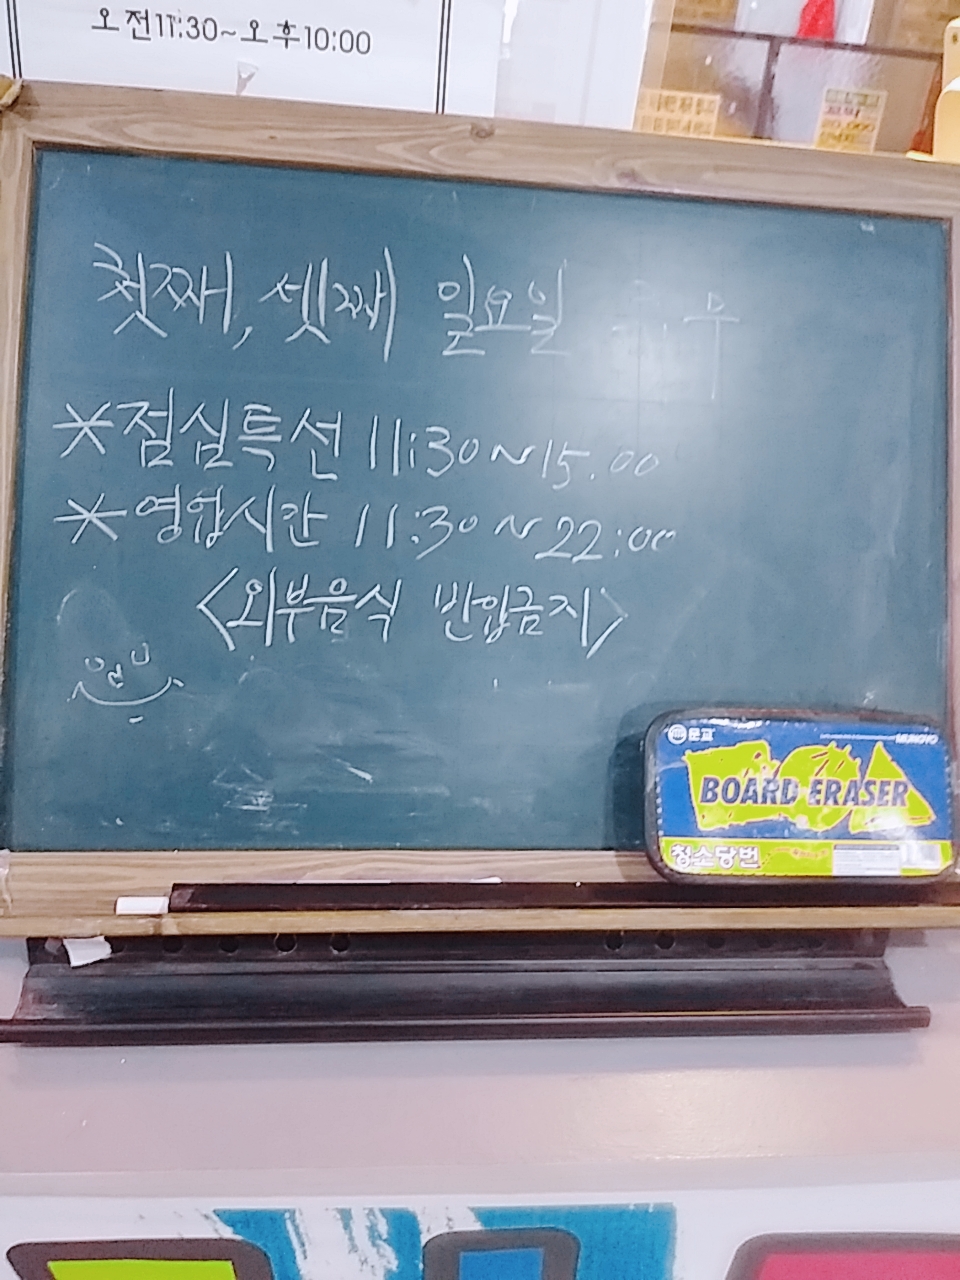 오전11:30~오후10:00
첫째, 셋째 일요일
*점심특선 11:30~15.00
*영업시간 11:30~22:00
<외부음식 반입금지>
문교 MUNGYO
BOARD ERASER
청소당번